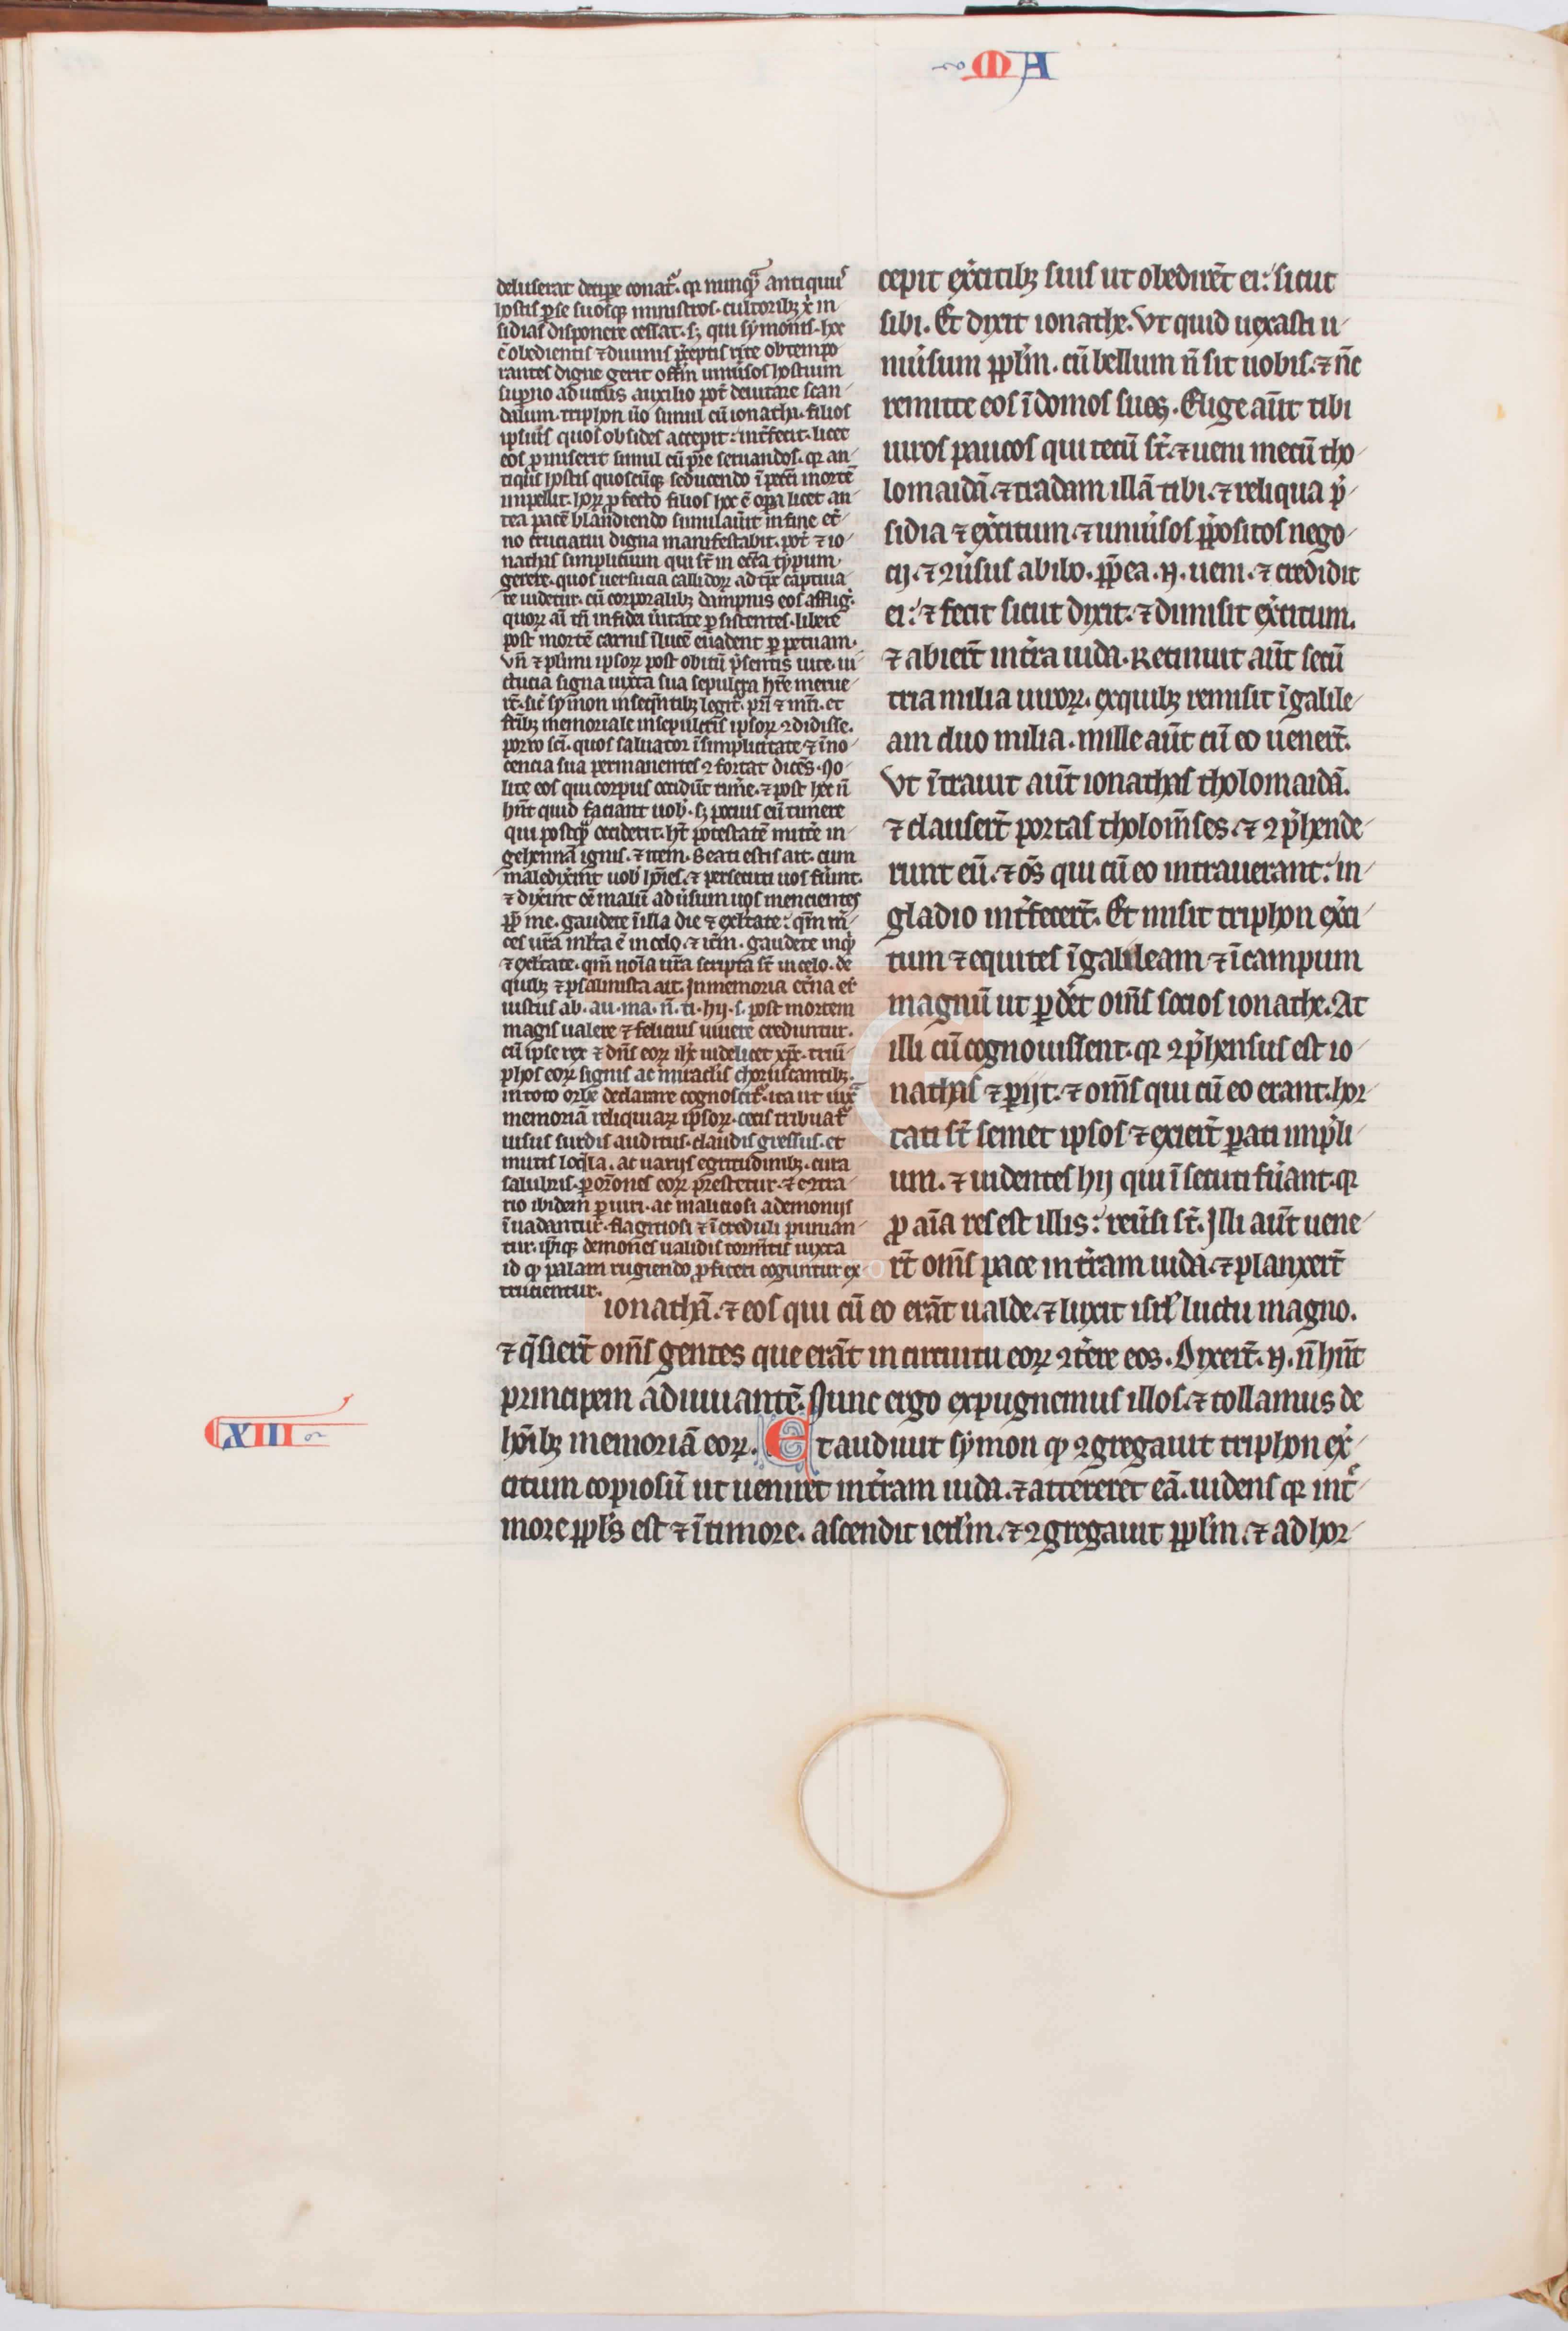 MA
deluserat decipe conat᷑. qr nunq̃ antiquus
hostis p se suosq; ministros. cultoribz xp̄i in
sidias disponere cessat. sz qui symonis. hoc
ē obedientis ⁊ diuinis p̃ceptis rite obtempo
rantes digne gerit offm̄ uniũsos hostium
sup̃no adiutus auxilio pot̃ deuitare scan
dalum. triphon ũo simul cū ionatha. filios
ipsius quos obsides accepit: int̃fecit. licet
eos p̱miserit simul cū pr̄e seruandos. qr an
tiqus hostis quoscūq; seducendo ī pctī mortē
impellit. hor̃ ꝓfecto filios hoc ē opa licet an
tea pacē blandiendo simulauit in fine et̃
no cruciatui digna manifestabit. pot̃ ⁊ io
nathas simplicium qui st̄ in ecc̄a typum
gerere. quos uersucia callidoꝝ ad tp̄s captiua
re uidetur. cū corporalibz dampnis eos afflig̃.
quoꝝ aī tn̄ in fidei ũitate psistentes. libere
post mortē carnis ī lucē euadent ppetuam.
Vn̄ ⁊ plimi ipsoꝝ post obitū p̃sentis uite. in
dicia signa iuxta sua sepulcra h̃re merue
rt̄. sic̃ symon in seq̃ntibz legit᷑. pr̄i ⁊ mr̄i. et
fr̄ibz memoriale in sepulcris ipsoꝝ ꝯdidisse.
porro sc̄i. quos saluator ī simplicitate ⁊ īno
cencia sua permanentes ꝯfortat dicēs. No
lite eos qui corpus occidūt tim̃e. ⁊ post hec n̄
hn̄t quid faciant uob̃. sz pocius eū timere
qui postq̃ occiderit. ht̄ potestatē mitt̃e in
gehennā ignis. ⁊ item. Beati estis ait. cum
maledix̃int uob̃ hoīes. ⁊ persecuti uos fũint.
⁊ dix̃int oē malū aduersum uos mencientes
ꝓp̃ me. gaudete ī illa die ⁊ exl̃tate: qm̄ m̃
ces ur̄a ml̃ta ē in celo. ⁊ itm̃. gaudete inq̃
⁊ exl̃tate. qm̄ noīa ur̄a scripta st̄ in celo. de
quibz ⁊ psalmista ait. In memoria et̃na er̃
iustus ab. au. ma. n̄. ti. hij. s. post mortem
magis ualere ⁊ felicius uiuere creduntur.
cū ipse rex ⁊ dn̄s eoꝝ ih̄c uidelicet xp̄c. triū
phos eoꝝ signis ac miraclis choruscantibz.
in toto orbe declarare cognoscit᷑. ita ut iux̃
memoriā reliquiaꝝ ipsoꝝ. cecis tribuat᷑
uisus surdis auditus. claudis gressus. et
mutis loq̃la. ac uarijs egritudinibz. cura
salubris. p or̄ones eoꝝ prestetur. ⁊ econtra
rio ibidem piuri. ac maliciosi a demonijs
īuadantur̃. flagitiosi ⁊ īcreduli punian
tur. ipiq; demones ualidis torm̄tis iuxta
id qđ palam rugiendo ꝓfiteri coguntur ex
crucientur.
cepit ex̃citibz suis ut obedirēt ei: sicut
sibi. Et dixit ionathe. Vt quid uexasti u
niũsum ppl̃m. cū bellum n̄ sit nobis. ⁊ nc̄
remitte eos ī domos suas. Elige aūt tibi
uiros paucos qui tecū st̄. ⁊ ueni mecū tho
lomaidā. ⁊ tradam illā tibi. ⁊ reliqua p̃
sidia ⁊ ex̃citum. ⁊ uniũsos p̃positos nego
cij. ⁊ ꝯũsus abibo. ꝓp̃ea. n̄. ueni. ⁊ credidit
ei: ⁊ fecit sicut dixit. ⁊ dimisit ex̃citum.
⁊ abiert̄ in t̃ra iuda. Retinuit aūt secū
tria milia uiroꝝ. ex quibz remisit ī galile
am duo milia. mille aūt cū eo uenert̄.
Vt ītrauit aūt ionathas tholomaidā.
⁊ clausert̄ portas tholom̄ses. ⁊ ꝯp̃hende
runt eū. ⁊ om̄s qui cū eo intrauerant: in
gladio int̃fecert̄. Et misit triphon ex̃ci
tum ⁊ equites ī galileam ⁊ ī campum
magnū ut pderet om̄s socios ionathe. At
illi cū cognouissent. qr ꝯp̃hensus est io
nathas ⁊ pijt. ⁊ om̄s qui cū eo erant. hor
tati st̄ semet ipsos ⁊ exiert̄ pati in p̃li
um. ⁊ uidentes hij qui īsecuti fũant. qr
ꝓ aīa res est illis: reũsi st̄. Illi aūt uene
rt̄ om̄s pace in t̃ram iuda. ⁊ planxert̄
ionathā. ⁊ eos qui cū eo erāt ualde. ⁊ luxit isrl̃ luctu magno.
⁊ q̃siert̄ om̄s gentes que erāt in circuitu eoꝝ ꝯt̃ere eos. Dixert̄. n̄. n̄ hn̄t
principem ⁊ adiuuantē. Nunc ergo expugnemus illos. ⁊ tollamus de
hoībz memoriā eoꝝ. Et audiuit symon qđ ꝯgregauit triphon ex̃
XIII
citum copiosū ut ueniret in t̃ram iuda. ⁊ attereret eā. uidens qr in t̃
more ppl̃s est ⁊ ī timore. ascendit ierl̃m. ⁊ ꝯgregauit ppl̃m. ⁊ adhor